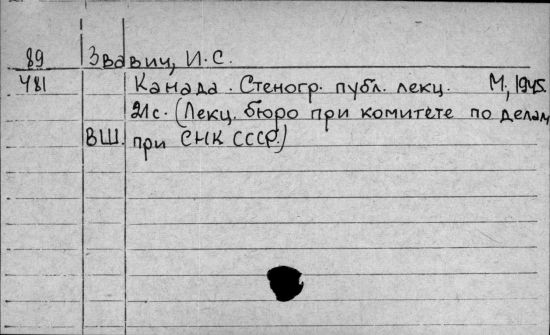 89 Звавич, И.С.
481 Канада. Стеногр. публ. лекц. М, 1945.
21с. (Лекц. бюро при комитете по делам
ВШ. при СНК СССР.)